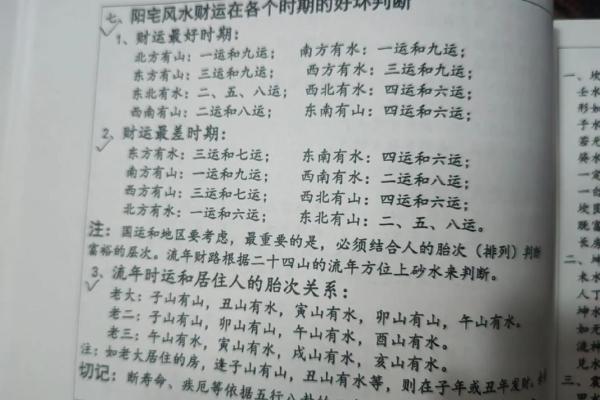 七、阳宅风水财运在各个时期的好坏判断
1、财运最好时期：
北方有山：一运和九运； 南方有水：一运和九运；
东方有山：三运和九运； 西方有水：三运和九运；
东北有水：二、五、八运； 西北有水：四运和六运；
西南有山：二运和八运； 东南有山：四运和六运；
2、财运最差时期：
东方有水：三运和七运； 东南有水：四运和六运；
南方有山：一运和九运； 西南有水：二运和八运；
西方有山：三运和七运； 西北有山：四运和六运；
北方有水：一运和六运； 东北有山：二、五、八运。
注：国运和地区要考虑，最重要的是，必须结合人的胎次（排列）判断
富裕的层次。流年财路根据二十四山的流年方位上砂水来判断。
3、流年时运和居住人的胎次关系：
老大：子山有山，丑山有水，寅山有水，卯山有山，午山有水。
老二：子山有山，卯山有山，午山有水，酉山有水。
老三：午山有水，寅山有水，戌山有水，亥山有水。
注：如老大居住的房，逢子山有山，丑山有水等，则在子年或丑年发财。
切记：断寿命、疾厄等依据五行八卦的
一、坎
壬水
形如
子水
若无
癸水
一定
一白
坎艮
既富
长房
二、坤
未水
人丁
坤水
如无
流神
兑水
三、震